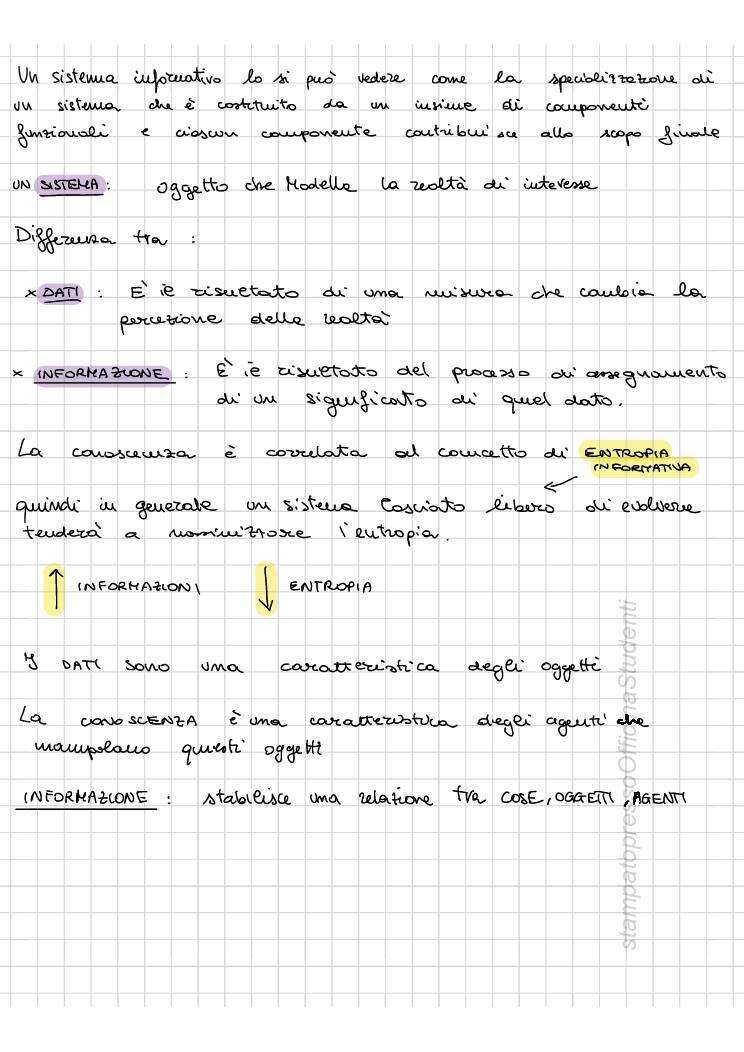 Un sistema informativo lo si può vedere come la specializzazione di
un sistema che è costituito da un insime di componenti
funzionali e ciascun componente contribuisce allo scopo finale
UN SISTEMA: oggetto che Modella la realtà di interesse
Differenza tra :
× DATI : E' il risultato di una misura che cambia la
percezione della realtà
× INFORMAZIONE : È il risultato del processo di assegnamento
di un significato di quel dato.
La conoscenza è correlata al concetto di ENTROPIA
INFORMATIVA
quindi in generale un sistema lasciato libero di evolvere
tenderà a l'entropia.
↑ INFORMAZIONI ↓ ENTROPIA
I DATI sono una caratteristica degli oggetti
La CONOSCENZA è una caratteristica degli agenti che
manipolano questi oggetti
INFORMAZIONE : stabilisce una relazione tra COSE, OGGETTI, AGENTI
stampatopressoOfficinaStudenti